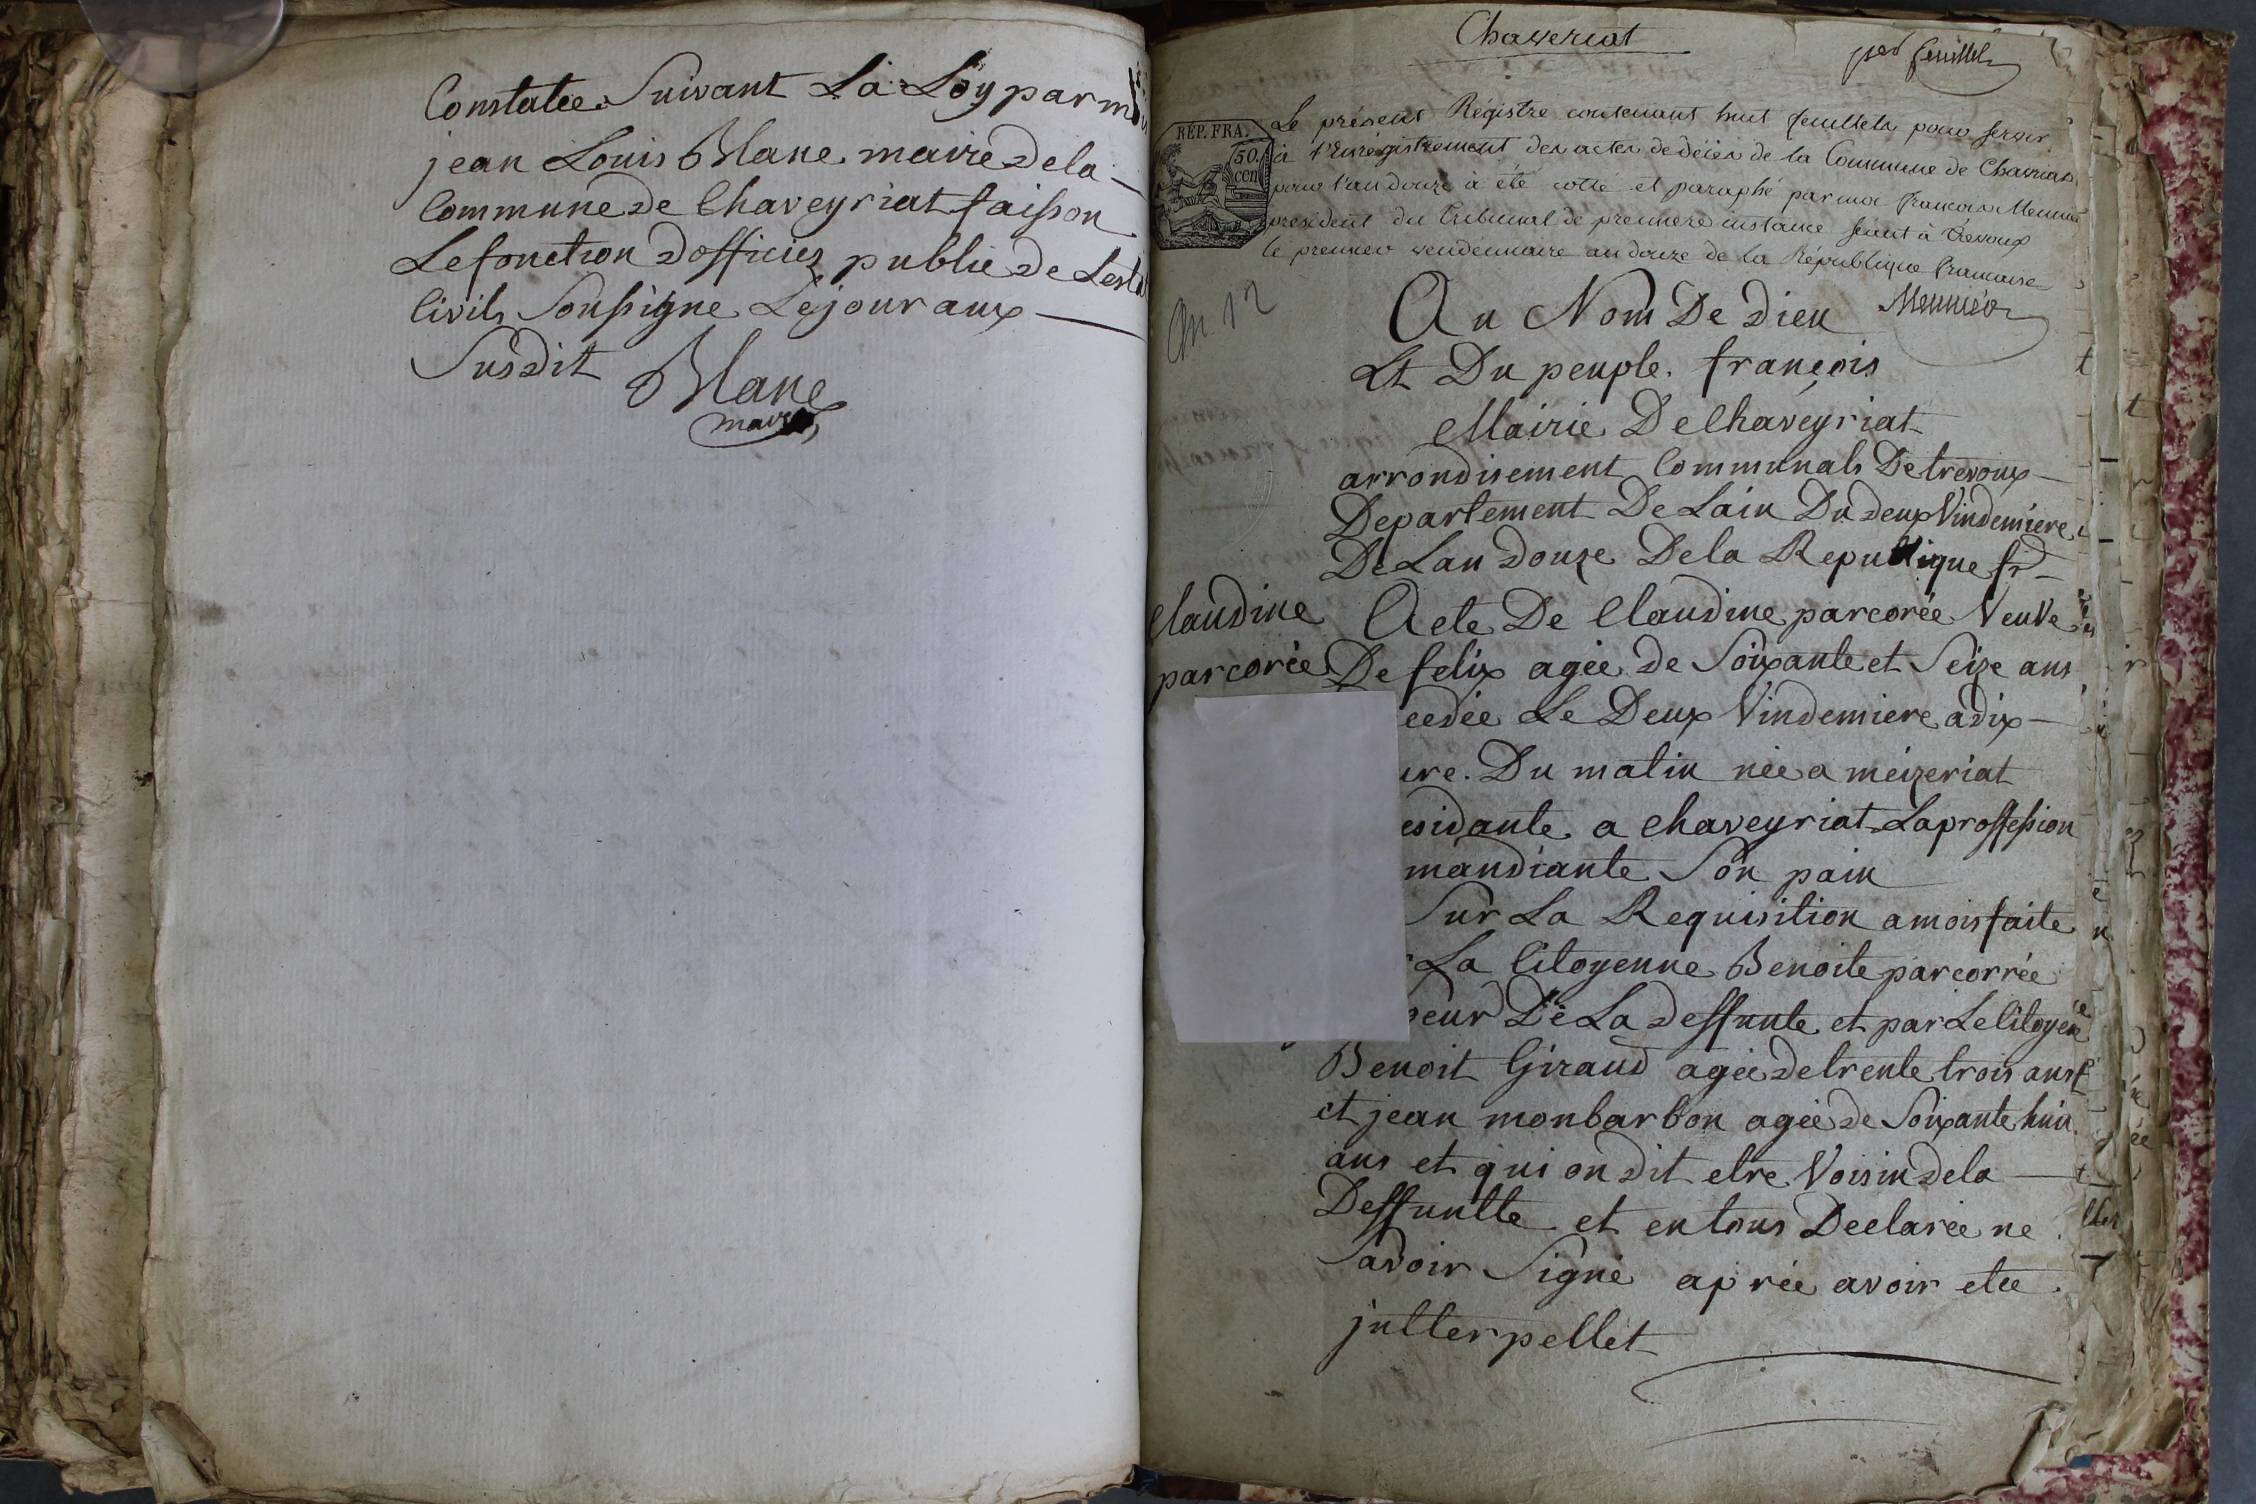 Constatée Suivant La Loy par m
jean Louis Blanc maire dela
Commune de Chaveyriat faisson
Le fonction dofficier public de Lest
Civils Soussigne Lejour aux
Susdit Blanc
maire
Chaveriat
per feuillet
Le présent Régistre contenant huit feuillets pour servir
REP. FRA.
à l'Enrégistrement des actes de décès de la Commune de
50.
cen
pour l'an douze à été cotté et paraphé par moi François
président du Tribunal de premiere instance séant à Trevoux
le premier vendemiaire an douze de la République francaise
Meunier
An 12
Au Nom De Dieu
Et Du peuple françois
Mairie De Chaveyriat
arrondisement Communals De trevoux
Departement De Lain Du deux Vindemiere
De Lan douze Dela Republique fr
Claudine
parcorée
Acte De Claudine parcorée Veuve
De felix agée de Soixante et Seize ans
cedée Le Deux Vindemiere adix
ure. Du matin née a méizeriat
esidante a Chaveyriat Laproffession
mandiante Son pain
Sur La Requisition a mois faite
La Citoyenne Benoite parcorrée
De La deffunte et par Le Citoyen
Benoit Giraud agée de trente trois ans
et jean monbarbon agée de Soixante huit
ans et qui on dit etre Voisin dela
Deffuntte et en tous Declarée ne
Savoir Signé aprée avoir etee
jutterpellét